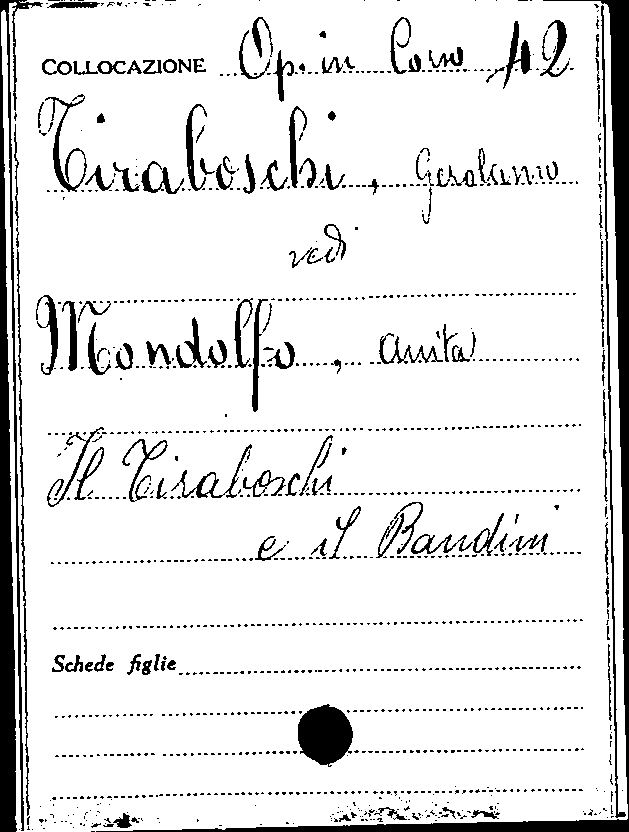 COLLOCAZIONE Op. in Corso 42
Tiraboschi, Gerolamo
vedi
Mondolfo, Anita
Il Tiraboschi
e il Bandini
Schede figlie